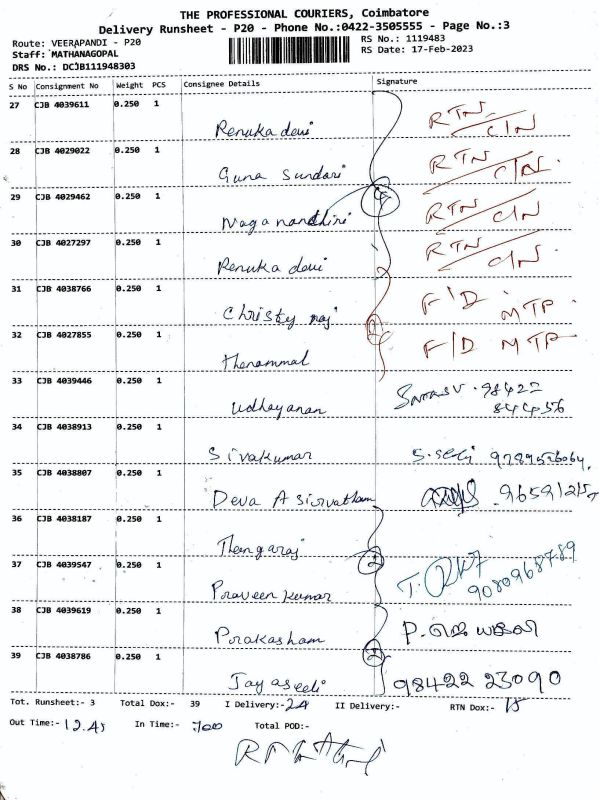 THE PROFESSIONAL COURIERS, Coimbatore
Delivery Runsheet - P20 - Phone No.:0422-3505555 - Page No.:3
Route: VEERAPANDI - P20
RS No.: 1119483
Staff: MATHANAGOPAL
RS Date: 17-Feb-2023
DRS No.: DCJB111948303
S No Consignment No Weight PCS Consignee Details Signature
27 CJB 4039611 0.250 1
Renuka devi RTN C/N
28 CJB 4029022 0.250 1
Guna Sundari RTN C/N.
29 CJB 4029462 0.250 1
Naga nandhini RTN C/N
30 CJB 4027297 0.250 1
Renuka devi RTN C/N
31 CJB 4038766 0.250 1
Christy raj F/D MTP.
32 CJB 4027855 0.250 1
Thenammal F/D MTP
33 CJB 4039446 0.250 1
Udhayanan 98422
844456
34 CJB 4038913 0.250 1
Sivakumar S. Selvi
35 CJB 4038807 0.250 1
Deva Asirvatham
36 CJB 4038187 0.250 1
Thangaraj
37 CJB 4039547 0.250 1
Praveen kumar 9080968789
38 CJB 4039619 0.250 1
Prakasham
39 CJB 4038786 0.250 1
Jayaseeli 98422 23090
Tot. Runsheet:- 3 Total Dox:- 39 I Delivery:- 24 II Delivery:- RTN Dox:- 15
Out Time:- 12.45 In Time:- 700 Total POD:-